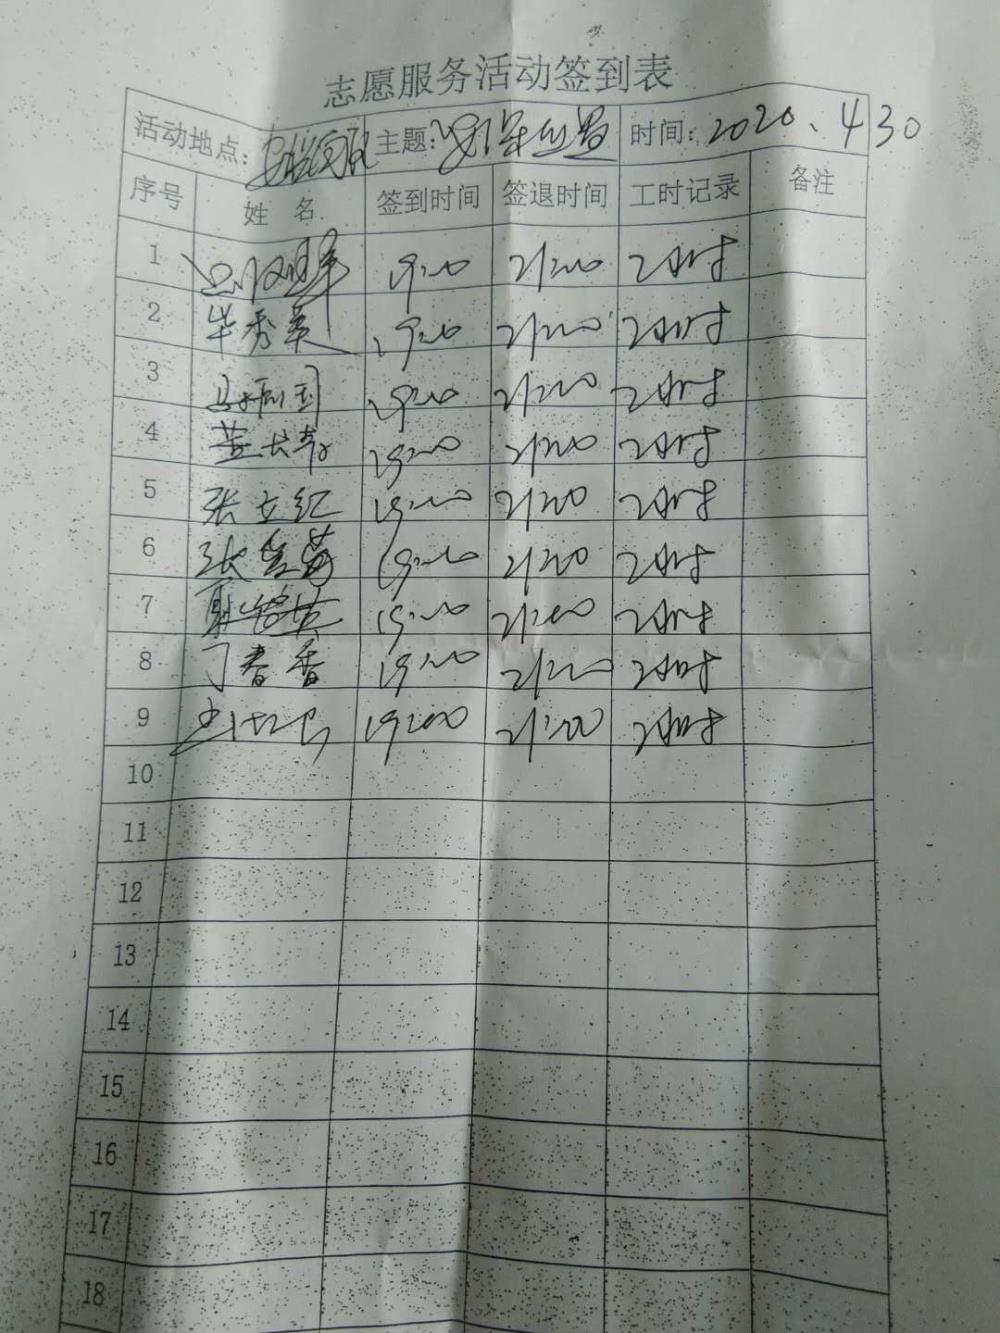 志愿服务活动签到表
活动地点: 主题: 时间: 2020、430
序号 姓 名 签到时间 签退时间 工时记录 备注
1 19:00 21:00 2小时
2 毕秀英 19:00 21:00 2小时
3 19:00 21:00 2小时
4 19:00 21:00 2小时
5 张立红 19:00 21:00 2小时
6 张 19:00 21:00 2小时
7 19:00 21:00 2小时
8 丁春香 19:00 21:00 2小时
9 19:00 21:00 2小时
10
11
12
13
14
15
16
17
18